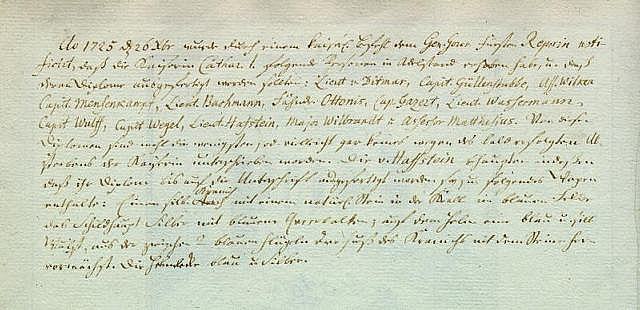 Ao 1725 d 26 Xbr wurde durch einen Kaiserl. Befehl dem Gen. Gouv. Fürsten Repnin noti-
ficirt, daß die Kaiserin Cathar. I. folgende Personen in Adelstand erhoben habe, u. daß
deren Diplome ausgefertigt werden sollten: Lieut v Ditmar, Capit Güllenstubbe, Ass. Wilcken
Capit Mensenkampf, Lieut Bachmann, Fähnr Ottonis, Cap. Gazert, Lieut Wassermann,
Capit Wulff, Capit Wegel, Lieut. Hafstein, Major Wilbrandt u Assessor Matthelius. Von diesen
Diplomen sind wohl die wenigsten, vielleicht gar keines wegen des bald erfolgten Ab-
sterbens der Kaiserin unterschrieben worden. Die v. Haffstein behaupten indessen
daß ihr Diplom bis auf die Unterschrift ausgefertigt worden sey, u. folgendes Wapen
enthalte: Einen silb. Kranich mit einem natürl. Stein in der Kralle im blauen Felde
das Schildhaupt Silber mit blauem Querbalken; auf dem Helm eine blau u. silb
Wulst, aus der zwischen 2 blauen Flügeln der Fuß des Kranichs mit dem Steine her-
vorwächst. Die Helmdecke blau u. Silber.